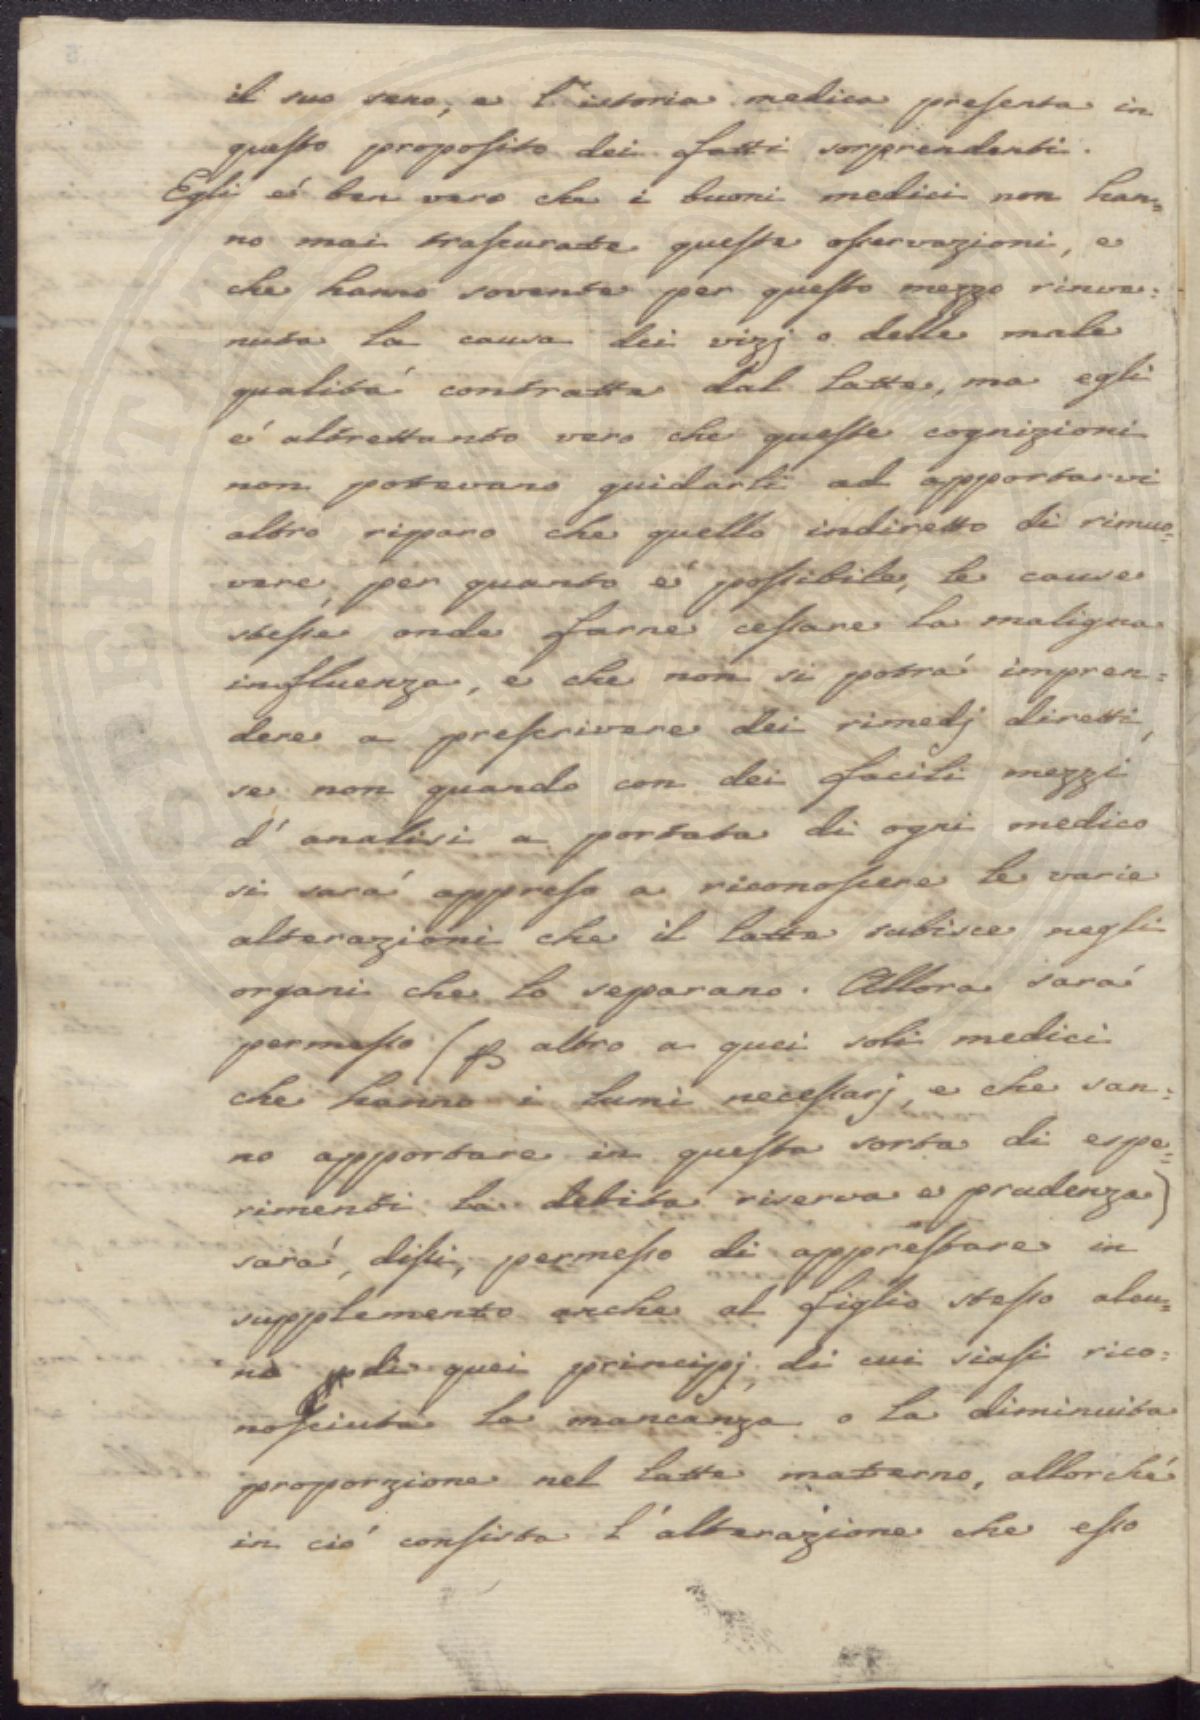 il suo seno, e l'istoria medica presenta in
questo proposito dei fatti sorprendenti.
Egli é ben vero che i buoni medici non han=
no mai trascurate queste osservazioni, e
che hanno sovente per questo mezzo rinve=
nuta la causa dei vizj o delle male
qualitá contratte dal latte, ma egli
é altrettanto vero che queste cognizioni
non potevano guidarli ad apportarvi
altro riparo che quello indiretto di rimuo=
vere, per quanto é possibile, le cause
stesse onde farne cessare la maligna
influenza, e che non si potrá impren=
dere a prescrivere dei rimedj diretti,
se non quando con dei facili mezzi
d'analisi a portata di ogni medico
si sará appreso a riconoscere le varie
alterazioni che il latte subisce negli
organi che lo separano. Allora sará
permesso ( altro a quei soli medici
che hanno i lumi necessarj, e che san=
no apportare in questa sorta di espe=
rimenti la debita riserva e prudenza)
sará, dissi, permesso di apprestare in
supplemento anche al figlio stesso alcu=
no di quei principj, di cui siasi rico=
nosciuta la mancanza o la diminuita
proporzione nel latte materno, allorché
in ció consista l'alterazione che esso